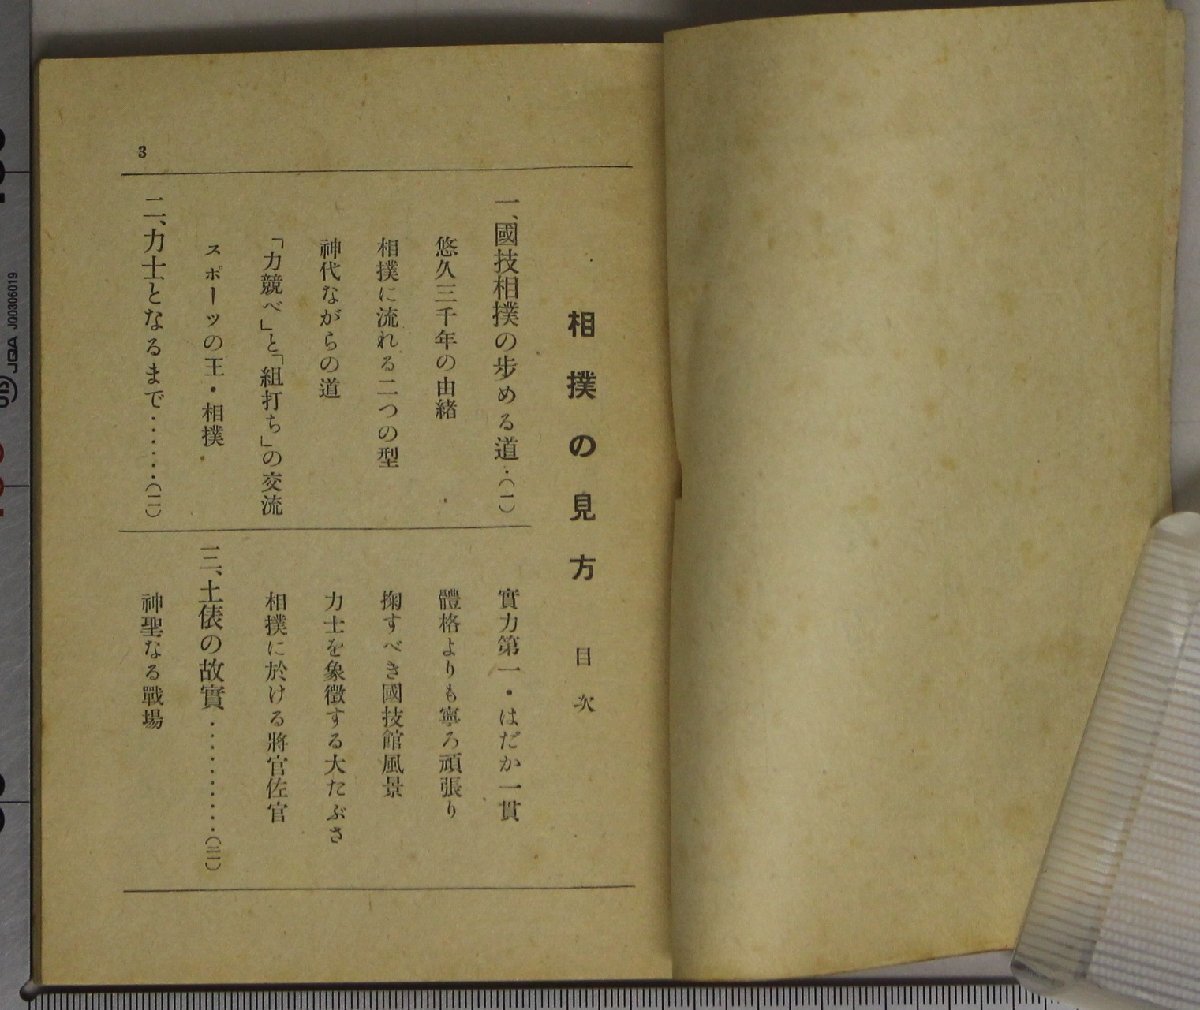 相撲の見方 目次
一、國技相撲の歩める道・(一)
悠久三千年の由緒
相撲に流れる二つの型
神代ながらの道
「力競べ」と「組打ち」の交流
スポーツの王・相撲
二、力士となるまで・・・・・・(一一)
實力第一・はだか一貫
體格よりも寧ろ頑張り
掬すべき國技館風景
力士を象徴する大たぶさ
相撲に於ける將官佐官
三、土俵の故實・・・・・・・・・・(三一)
神聖なる戰場
3
JQA J00306019